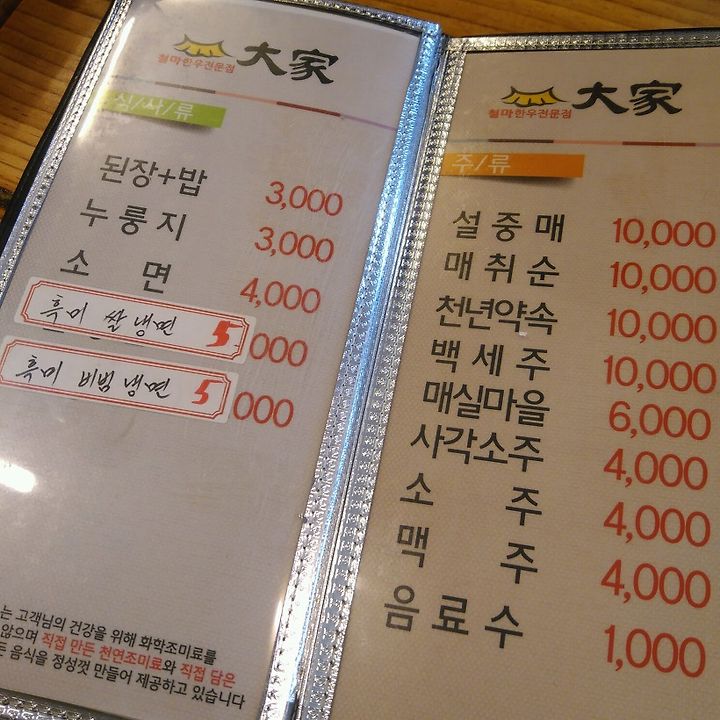 철마한우전문점 大家
식/사/류
된장+밥 3,000
누룽지 3,000
소 면 4,000
흑미 쌀냉면 5 000
흑미 비빔냉면 5 000
는 고객님의 건강을 위해 화학조미료를
않으며 직접 만든 천연조미료와 직접 담은
든 음식을 정성껏 만들어 제공하고 있습니다
철마한우전문점 大家
주/류
설중매 10,000
매취순 10,000
천년약속 10,000
백세주 10,000
매실마을 6,000
사각소주 4,000
소 주 4,000
맥 주 4,000
음료수 1,000